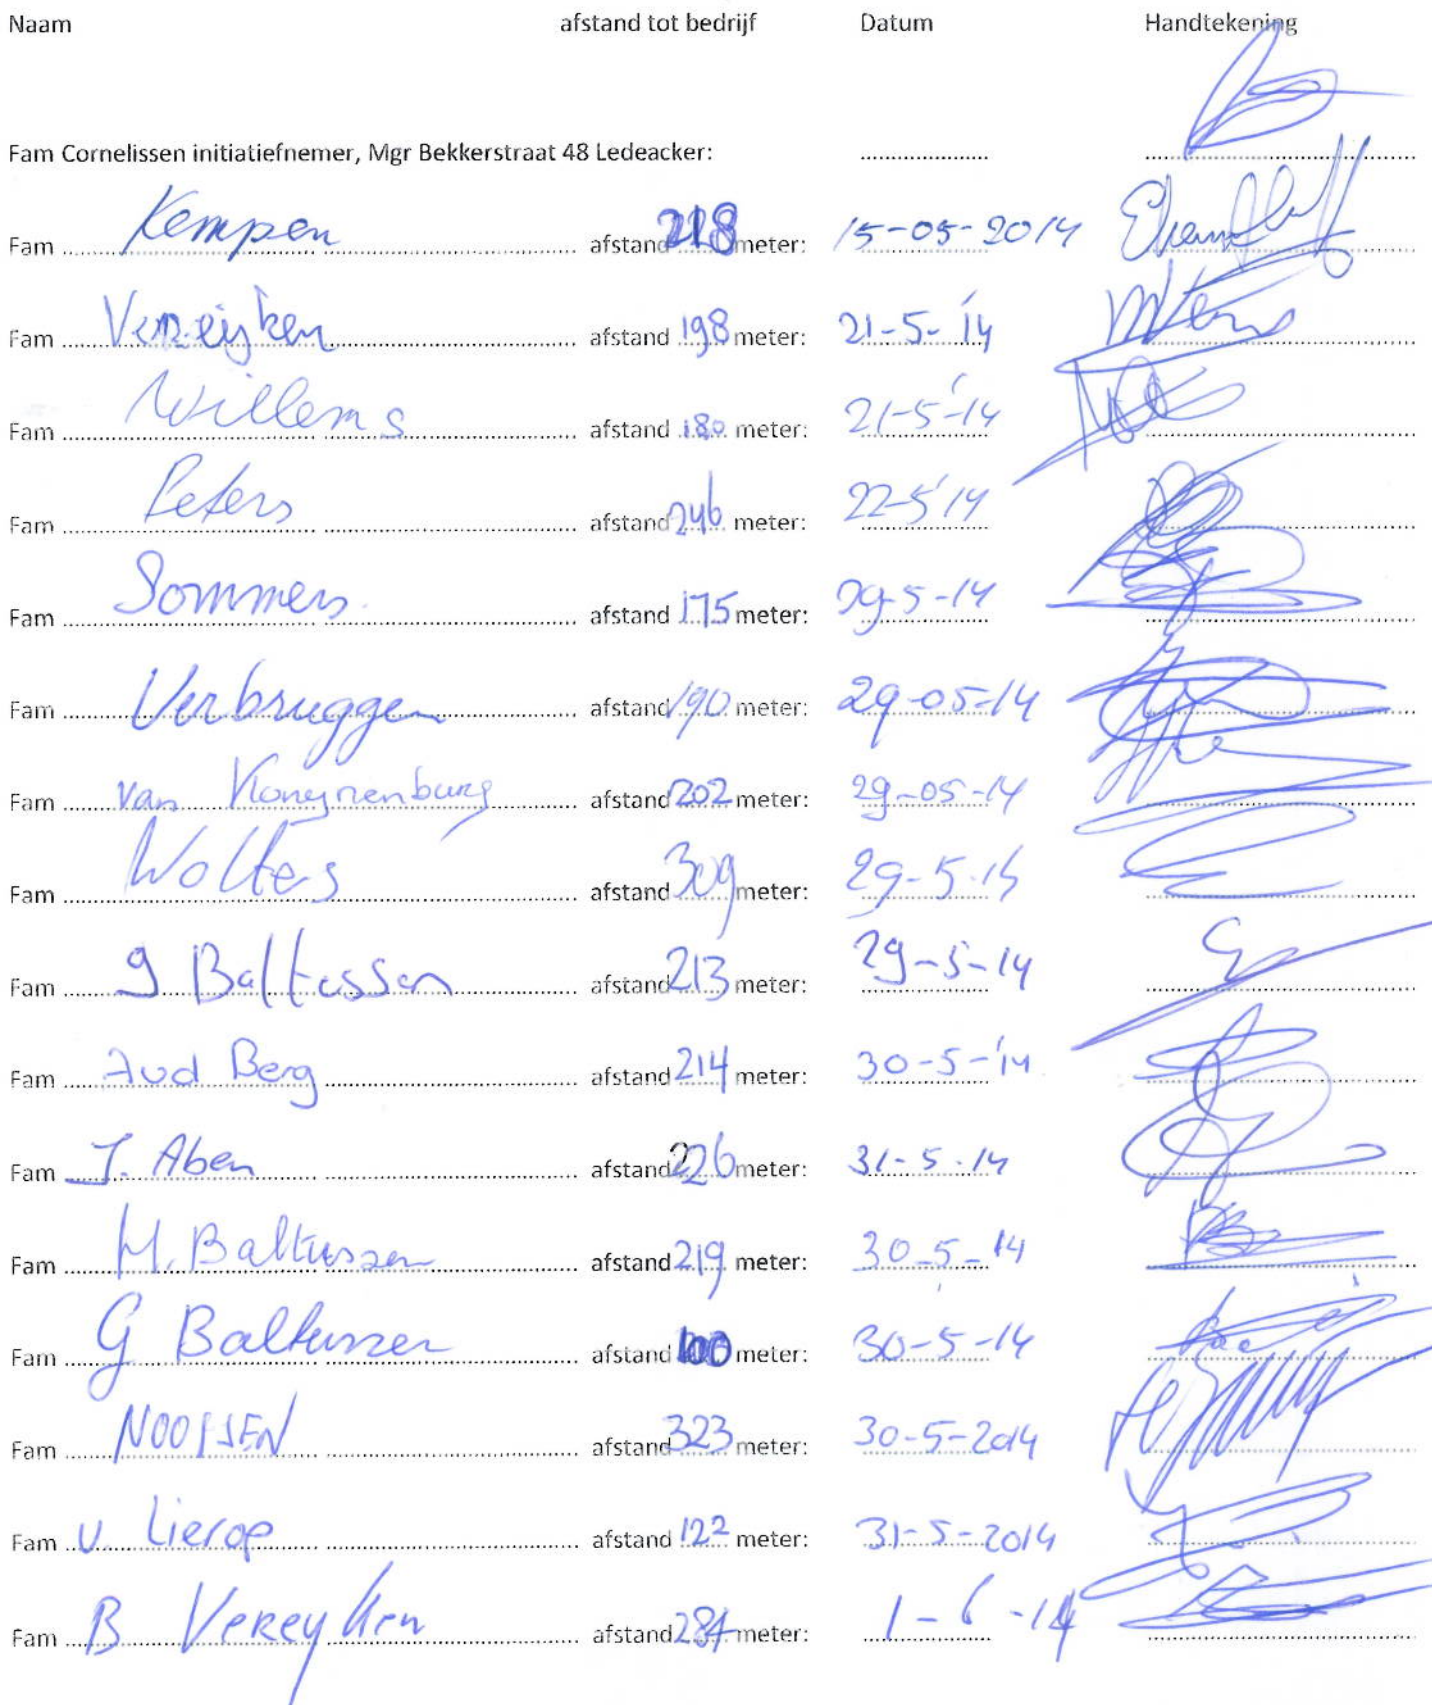 Naam afstand tot bedrijf Datum Handtekening
Fam Cornelissen initiatiefnemer, Mgr Bekkerstraat 48 Ledeacker: ....................
Fam Kempen afstand 218 meter: 15-05-2014
Fam Vereijken afstand 198 meter: 21-5-'14
Fam Willems afstand 180 meter: 21-5-'14
Fam Peters afstand 246 meter: 22-5'14
Fam Sommers afstand 175 meter: 29-5-14
Fam Verbruggen afstand 190 meter: 29-05-14
Fam van Konynenburg afstand 202 meter: 29-05-14
Fam Wolters afstand 309 meter: 29-5-14
Fam J Baltussen afstand 213 meter: 29-5-14
Fam A vd Berg afstand 214 meter: 30-5-'14
Fam J. Aben afstand 226 meter: 31-5-14
Fam H. Baltussen afstand 219 meter: 30-5-14
Fam G Baltussen afstand 100 meter: 30-5-14
Fam NOOIJEN afstand 323 meter: 30-5-2014
Fam v. Lierop afstand 122 meter: 31-5-2014
Fam B Vereyken afstand 284 meter: 1-6-14